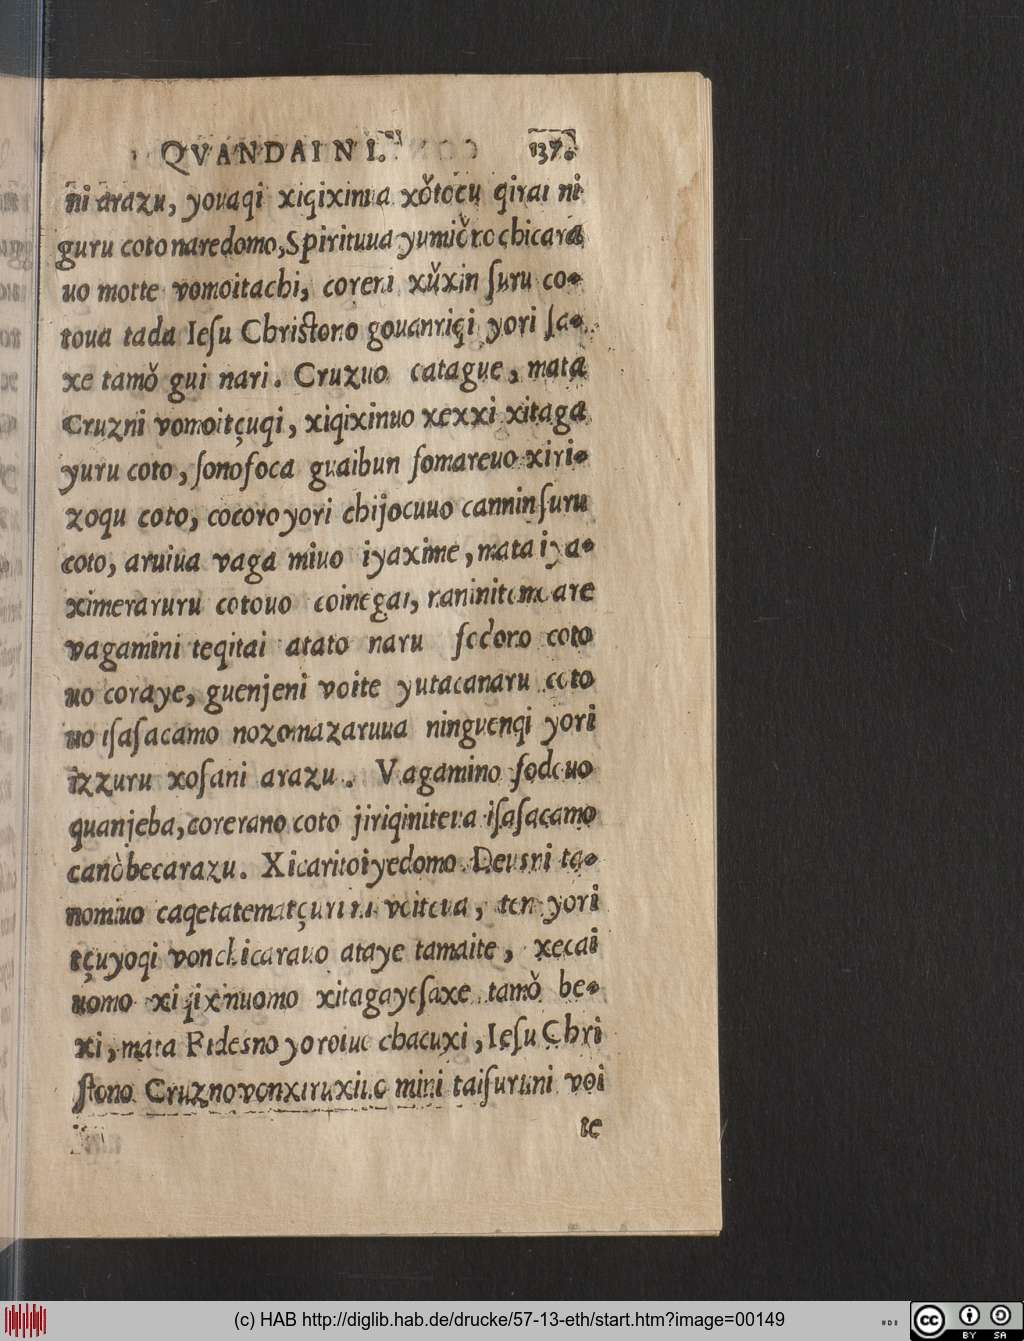 QVANDAI NI. 137.
ni arazu, yovaqi xiqixinwa xŏtocu qirai ni
guru coto naredomo, Spirituua yumiŏ no chicara
uo motte vomoitachi, coreni xŭxin ſuru co-
toua tada Ieſu Chriſtono gouanriqi yori ſa-
xe tamŏ gui nari. Cruzuo catague, mata
Cruzni vomoitçuqi, xiqixinuo xexxi xitaga
yuru coto, ſonofoca guaibun fomareuo xiri-
zoqu coto, cocoro yori chijocuuo canninſuru
coto, aruiua vaga miuo iyaxime, mata iya-
ximeraruru cotouo coinegai, naninitemo are
vagamini teqitai atato naru fodono coto
uo coraye, guenjeni voite yutacanaru coto
uo iſaſacamo nozomazaruua ninguenqi yori
izzuru xoſani arazu. Vagamino fodouo
quanjeba, corerano coto jiriqiniteua iſaſacamo
canŏbecarazu. Xicaritoiyedomo Deusni ta-
nomiuo caqetatematçuruni voiteua, ten yori
tçuyoqi vonchicarauo ataye tamaite, xecai
uomo xiqixinuomo xitagayeſaxe tamŏ be-
xi, mata Fidesno yoroiuo chacuxi, Ieſu Chri
ſtono Cruzno vonxiruxiuo mini taiſuruni voi
te
(c) HAB http://diglib.hab.de/drucke/57-13-eth/start.htm?image=00149
cc BY SA